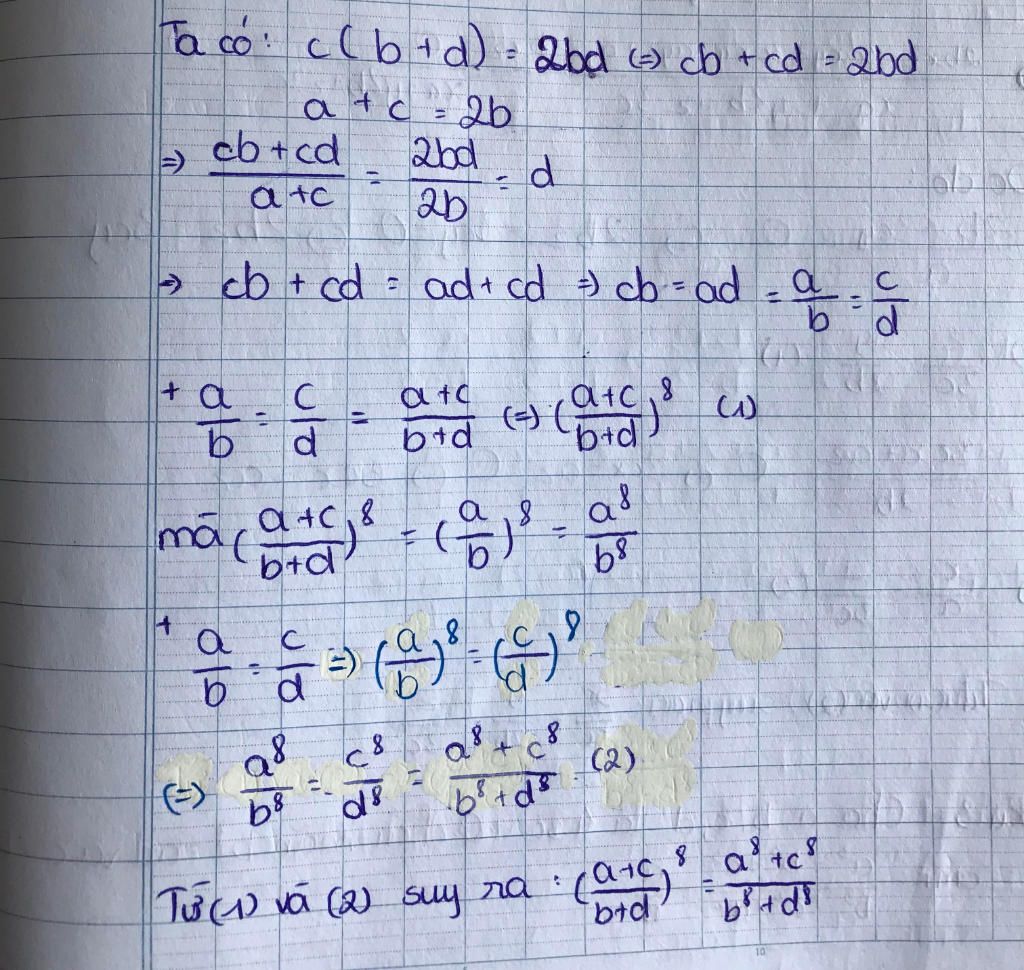 Ta có: c(b+d) = 2bd (=) cb + cd = 2bd
a + c = 2b
=> (cb + cd)/(a+c) = 2bd/2b = d
=> cb + cd = ad + cd => cb = ad = a/b = c/d
+ a/b = c/d = (a+c)/(b+d) (=) ((a+c)/(b+d))^8 (1)
mà ((a+c)/(b+d))^8 = (a/b)^8 = a^8/b^8
+ a/b = c/d => (a/b)^8 = (c/d)^8
(=>) a^8/b^8 = c^8/d^8 = (a^8 + c^8)/(b^8 + d^8) (2)
Từ (1) và (2) suy ra : ((a+c)/(b+d))^8 = (a^8 + c^8)/(b^8 + d^8)
10